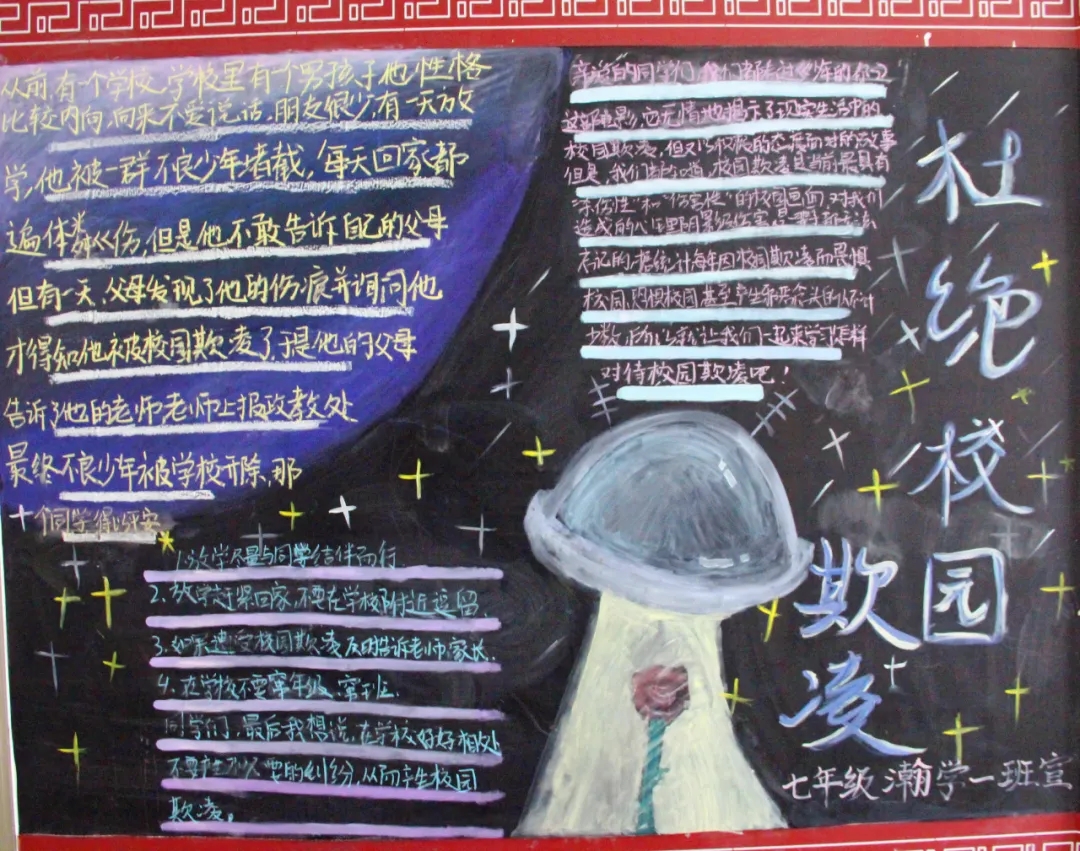 从前,有一个学校,学校里有个男孩子他性格
比较内向,向来不爱说话,朋友很少,有一天放
学,他被一群不良少年堵截,每天回家都
遍体粼伤,但是他不敢告诉自己的父母
但有一天,父母发现了他的伤痕并询问他
才得知他被校园欺凌了,于是他的父母
告诉了他的老师,老师上报政教处
最终不良少年被学校开除,那
个同学得以平安
1.放学尽量与同学结伴而行.
2.放学赶紧回家,不要在学校附近逗留.
3.如果遭受校园欺凌及时告诉老师,家长.
4.在学校不要窜年级、窜班.
同学们,最后我想说,在学校好好相处
不要产生不必要的纠纷,从而产生校园
欺凌。
亲爱的同学们,你们都看过少年的你
这部电影,它无情地揭示了现实生活中的
校园欺凌,但又以积极的态度面对的故事
但是,我们 校园欺凌是当前最具有
和"伤害性"的校园画面,对我们
造成的心里阴影和伤害是
忘记的.据统计每年因校园欺凌而畏惧
校园,甚至产生 念头的不计
少数,所以就让我们一起来学习怎样
对待校园欺凌吧!
杜绝校园
欺凌
七年级瀚学一班宣